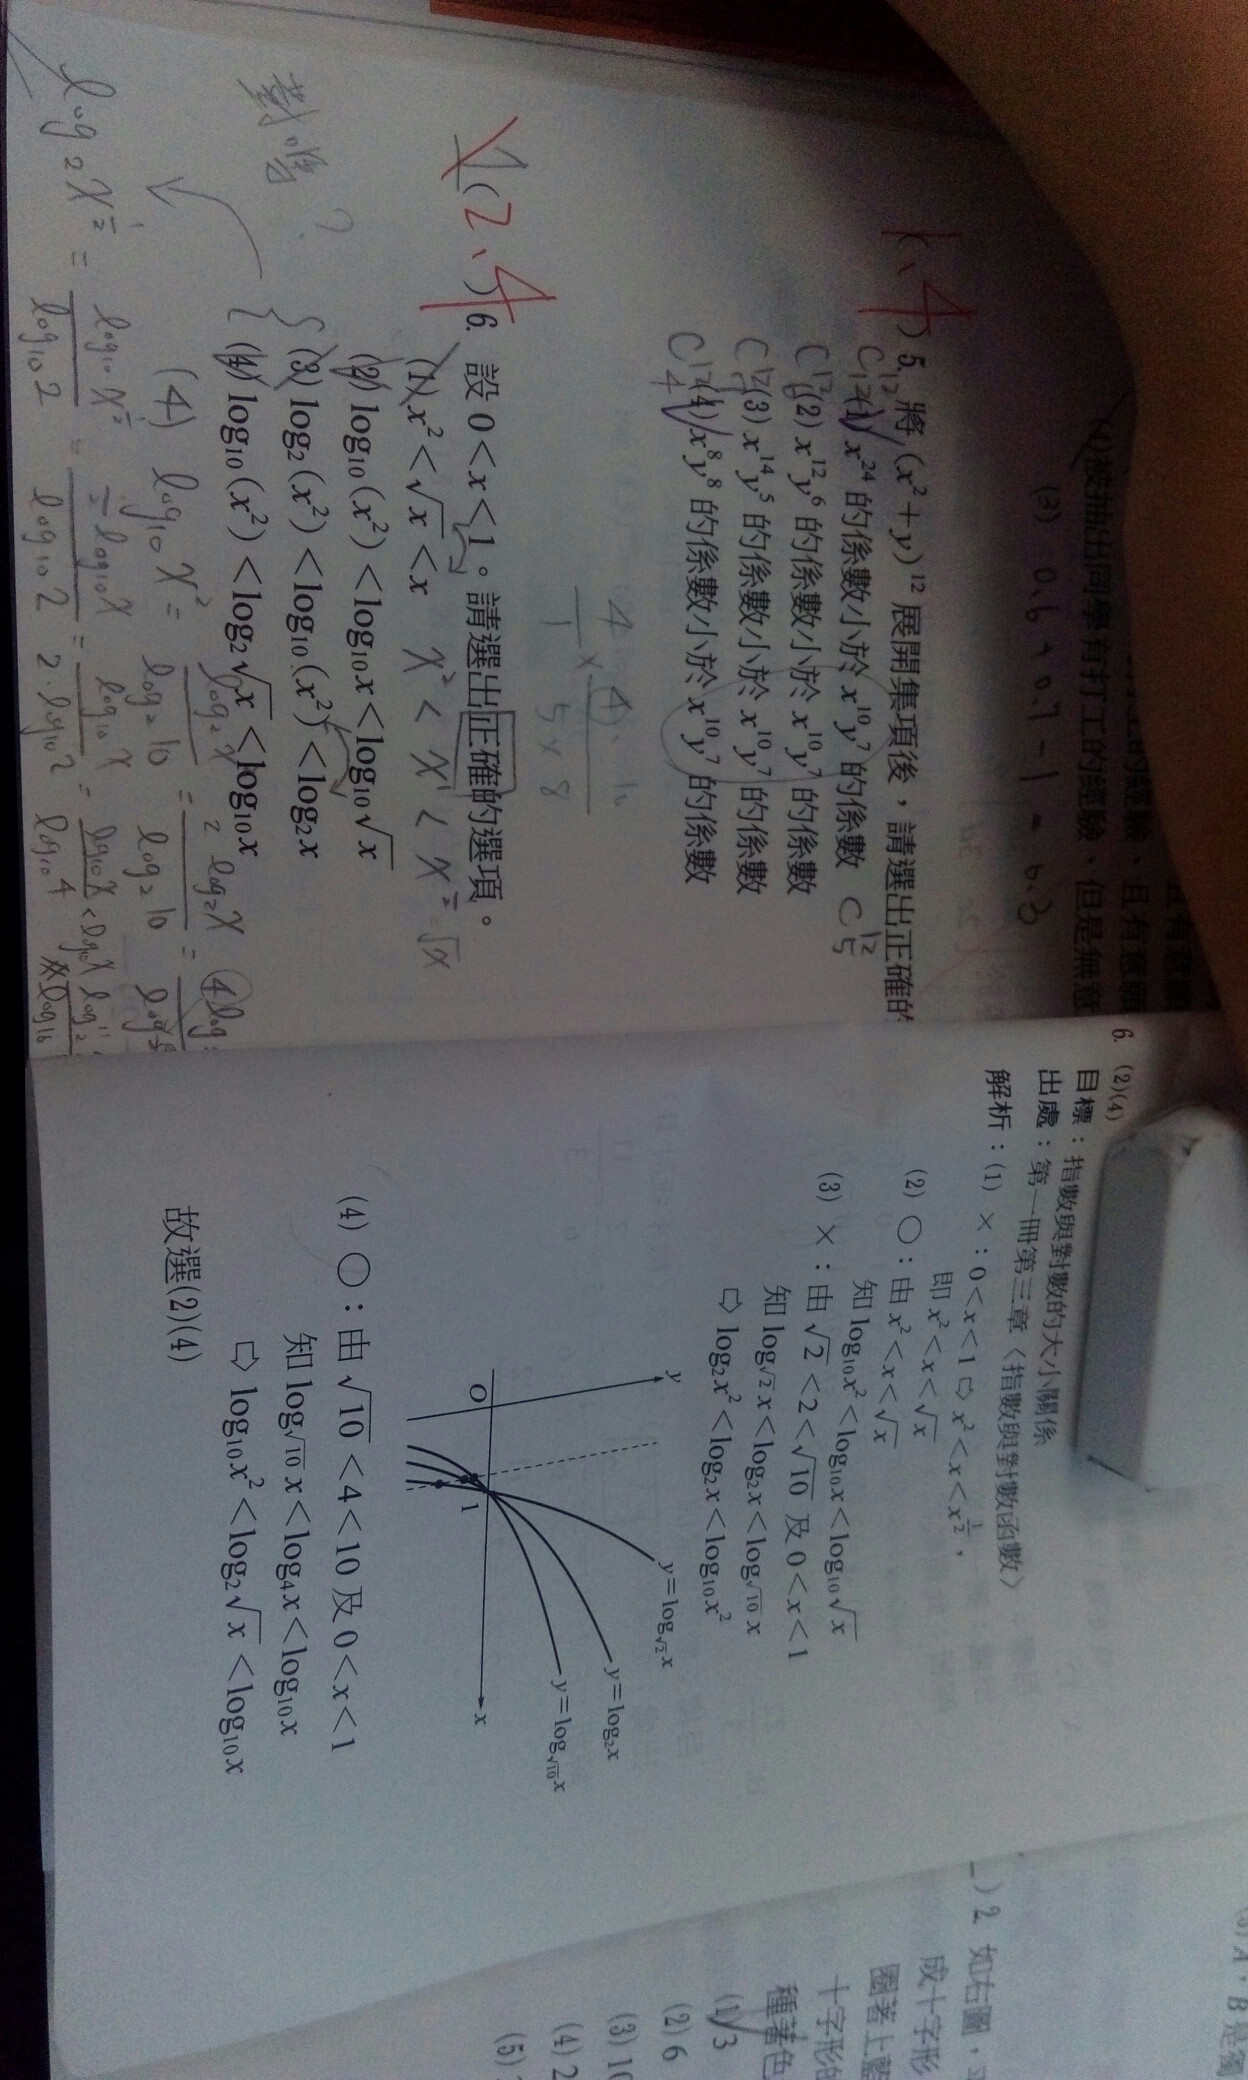 (4)被抽出同學有打工的經驗、但是無意
(3) 0.6 + 0.7 - 1 = 0.3
1、4
) 5. 將 (x²+y)¹² 展開集項後,請選出正確的
(1) x²⁴ 的係數小於 x¹⁰y⁷ 的係數 C¹²₅
(2) x¹²y⁶ 的係數小於 x¹⁰y⁷ 的係數
(3) x¹⁴y⁵ 的係數小於 x¹⁰y⁷ 的係數
C¹²₄ (4) x⁸y⁸ 的係數小於 x¹⁰y⁷ 的係數
(2、4) 6. 設 0<x<1。請選出正確的選項。
(1) x²<√x<x x² < x¹ < x^½ = √x
(2) log₁₀(x²)<log₁₀x<log₁₀√x
(3) log₂(x²)<log₁₀(x²)<log₂x
(4) log₁₀(x²)<log₂√x<log₁₀x
(4) log₁₀x² = log₂x² / log₂10 = 2log₂x / log₂10 =
log₂x^½ = log₁₀x^½ / log₁₀2 = ½log₁₀x / log₁₀2 = log₁₀x / 2·log₁₀2 = log₁₀x / log₁₀4
6. (2)(4)
目標:指數與對數的大小關係
出處:第一冊第三章〈指數與對數函數〉
解析:(1) ×:0<x<1⇨x²<x<x^½,
即 x²<x<√x
(2) ○:由 x²<x<√x
知 log₁₀x²<log₁₀x<log₁₀√x
(3) ×:由 √2<2<√10 及 0<x<1
知 log√2 x<log₂x<log√10 x
⇨ log₂x²<log₂x<log₁₀x²
y
y=log√2 x
y=log₂x
y=log√10 x
O
1
x
(4) ○:由 √10<4<10 及 0<x<1
知 log√10 x<log₄x<log₁₀x
⇨ log₁₀x²<log₂√x<log₁₀x
故選(2)(4)
) 2. 如右圖,
成十字形
圈著上藍
十字形的
種著色
(1) 3
(2) 6
(3) 10
(4) 2
(5)